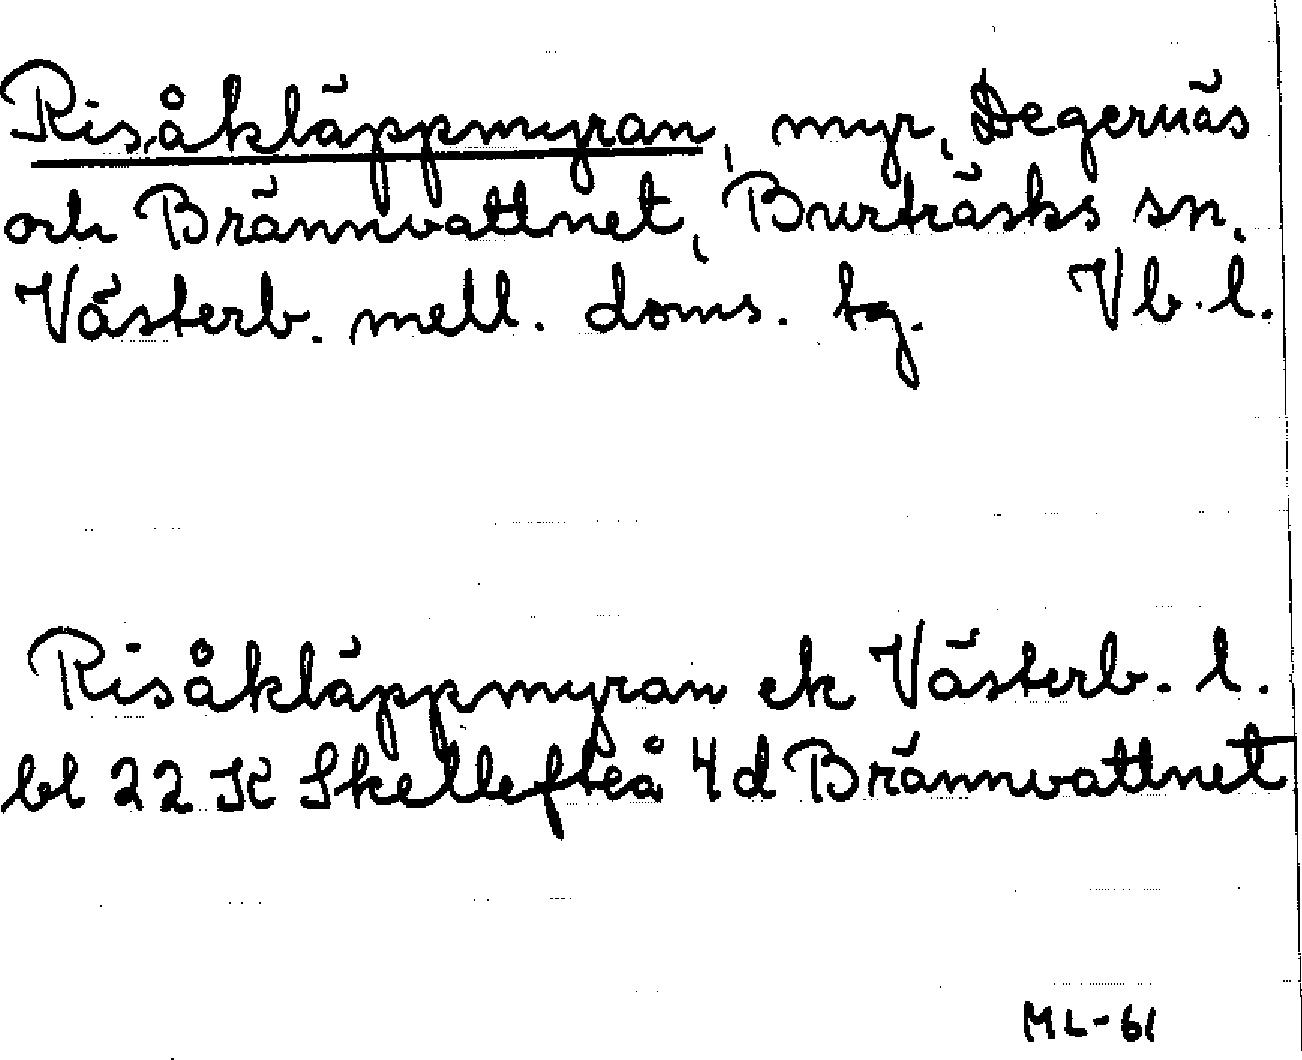 Risåkläppmyran, myr, Degernäs
och Brännvattnet, Burträsks sn,
Västerb. mell. doms. tg. Vb. l.
Risåkläppmyran ek Västerb. l.
bl 22 K Skellefteå 4d Brännvattnet
ML-61